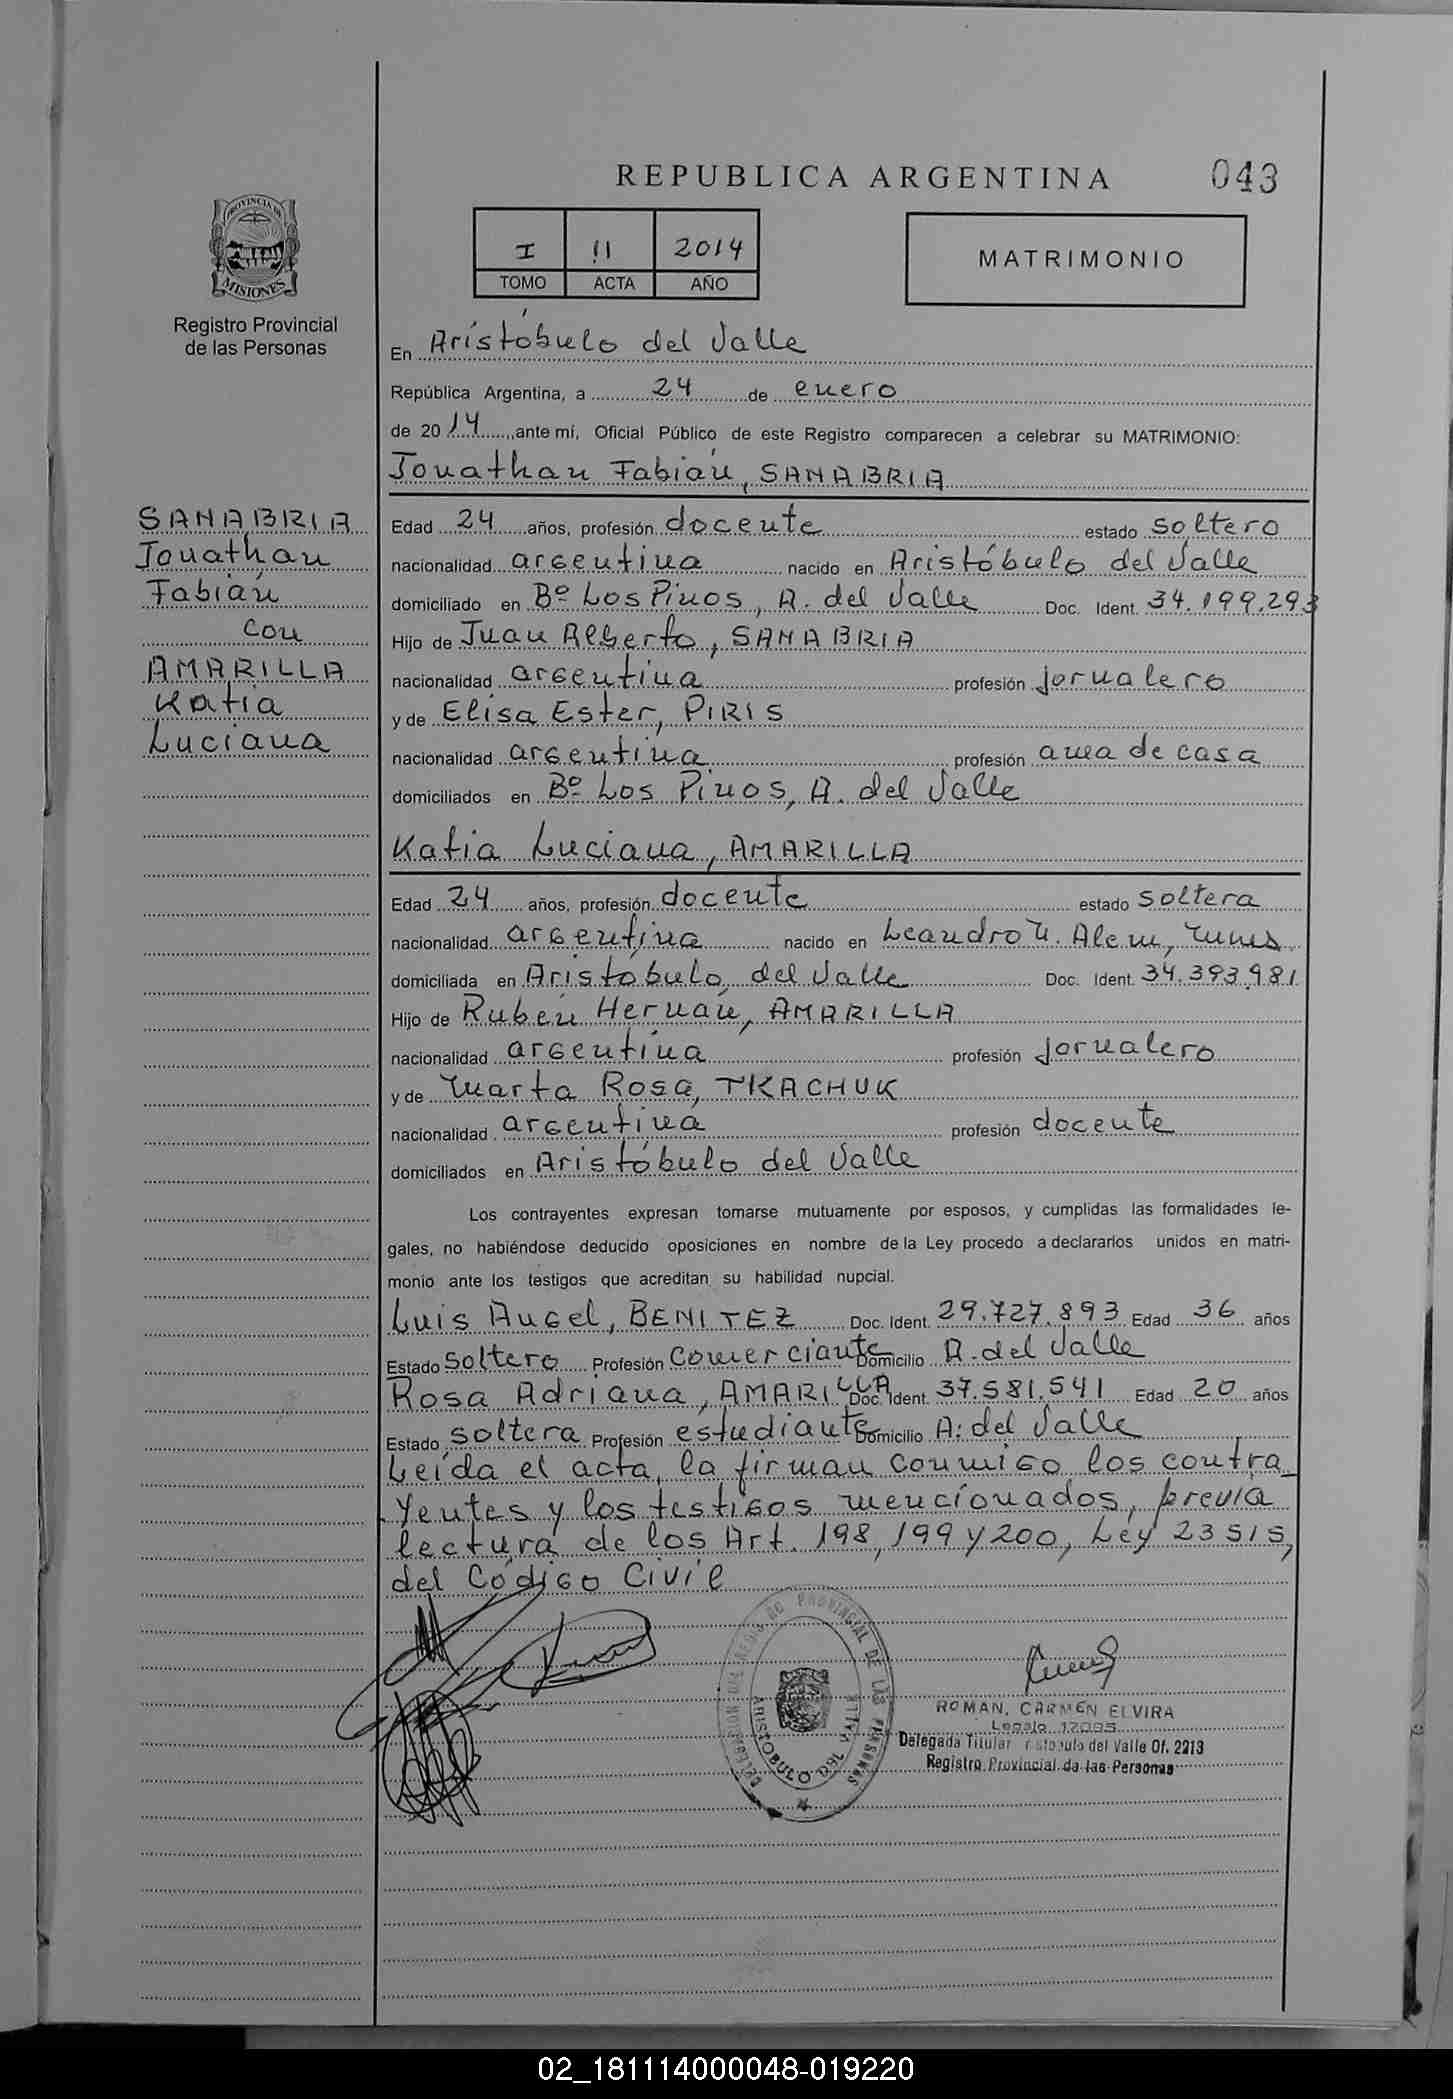 REPUBLICA ARGENTINA
043
PROVINCIA DE
MISIONES
Registro Provincial
de las Personas
I 11 2014
TOMO ACTA AÑO
MATRIMONIO
En Aristóbulo del Valle
República Argentina, a 24 de enero
de 2014, ante mí, Oficial Público de este Registro comparecen a celebrar su MATRIMONIO:
Jonathan Fabián, SANABRIA
SANABRIA
Jonathan
Fabián
con
AMARILLA
Katia
Luciana
Edad 24 años, profesión docente estado soltero
nacionalidad argentina nacido en Aristóbulo del Valle
domiciliado en Bº Los Pinos, A. del Valle Doc. Ident. 34.199.293
Hijo de Juan Alberto, SANABRIA
nacionalidad argentina profesión jornalero
y de Elisa Ester, PIRIS
nacionalidad argentina profesión ama de casa
domiciliados en Bº Los Pinos, A. del Valle
Katia Luciana, AMARILLA
Edad 24 años, profesión docente estado soltera
nacionalidad argentina nacido en Leandro N. Alem, Mnes
domiciliada en Aristóbulo del Valle Doc. Ident. 34.393.981
Hijo de Rubén Hernán, AMARILLA
nacionalidad argentina profesión jornalero
y de Marta Rosa, TKACHUK
nacionalidad argentina profesión docente
domiciliados en Aristóbulo del Valle
Los contrayentes expresan tomarse mutuamente por esposos, y cumplidas las formalidades le-
gales, no habiéndose deducido oposiciones en nombre de la Ley procedo a declararlos unidos en matri-
monio ante los testigos que acreditan su habilidad nupcial.
Luis Angel, BENITEZ Doc. Ident. 29.727.893 Edad 36 años
Estado soltero Profesión comerciante Domicilio A. del Valle
Rosa Adriana, AMARILLA Doc. Ident. 37.581.541 Edad 20 años
Estado soltera Profesión estudiante Domicilio A. del Valle
Leída el acta, la firman conmigo los contra
yentes y los testigos mencionados, previa
lectura de los Art. 198, 199 y 200, Ley 23515,
del Código Civil
DELEGACION DEL REGISTRO PROVINCIAL DE LAS PERSONAS
ARISTOBULO DEL VALLE
ROMAN, CARMEN ELVIRA
Legajo 12095
Delegada Titular Aristobulo del Valle Of. 2213
Registro Provincial de las Personas
02_181114000048-019220